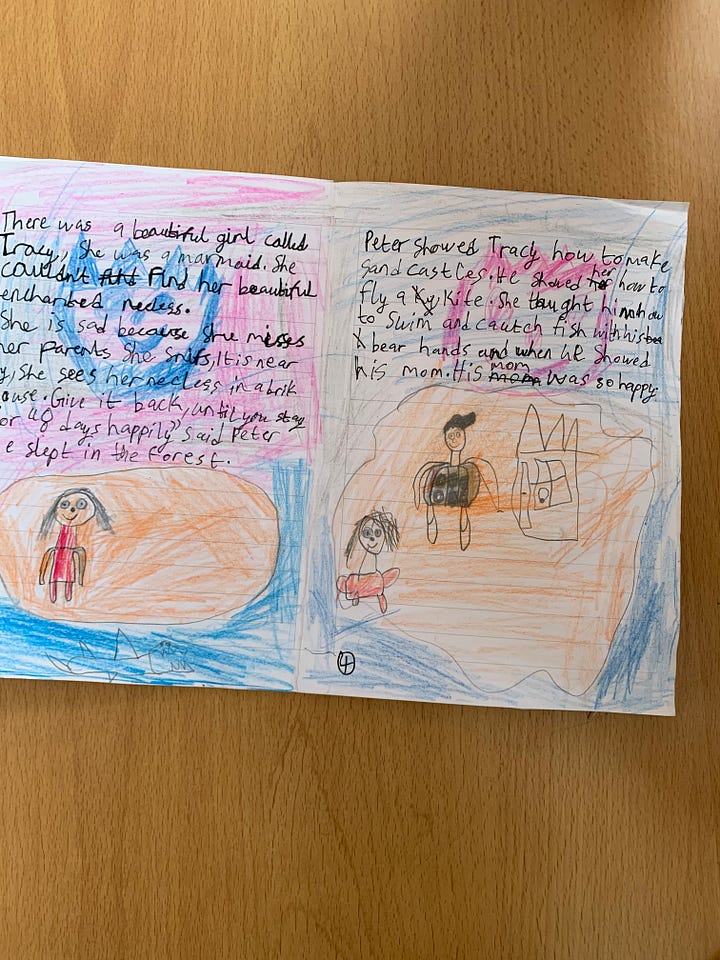 There was a beautiful girl called
Tracy, She was a marmaid. She
couldn't Find her beautiful
enchanted necless.
She is sad because She misses
her parents. She snifs, It is near
y, She sees her necless in a brik
ouse. "Give it back, until you stay
or 40 days happily" said Peter
e slept in the forest.
Peter showed Tracy how to make
Sand castles. He showed her how to
fly a kite. She taught him how
to Swim and cautch fish with his
bear hands and when he showed
his mom. His mom was so happy.
4